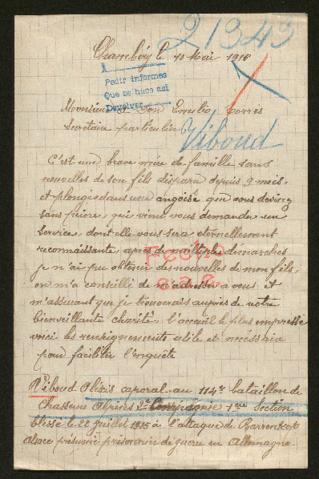 21343
Chambéry le 18 Mai 1916
Pedir informes
Que se hizo así
Devolver
Monsieur Don Emilio Torres
Secrétaire particulier
Viboud
C'est une brave mère de famille sans
nouvelles de son fils disparu depuis 9 mois,
et plongée dans une angoisse que vous devinez
sans peine, qui vient vous demander un
service, dont elle vous sera éternellement
reconnaissante, après de multiples demarches
je n'ai pu obtenir des nouvelles de mon fils
on m'a conseillé de m'adresser a vous, et
m'assurant que je trouverais auprès de votre
bienveillante charité, l'accueil le plus empressé
voici les renseignements utile et nécessaire
pour faciliter l'enquête
Fecho
Viboud caporal au 114e bataillon de
Chasseurs Alpins 2e Compagnie 1ere Section
blessé le 22 juillet 1915 à l'attaque de Barrenkopf
alsace présumé prisonnier de guerre en Allemagne